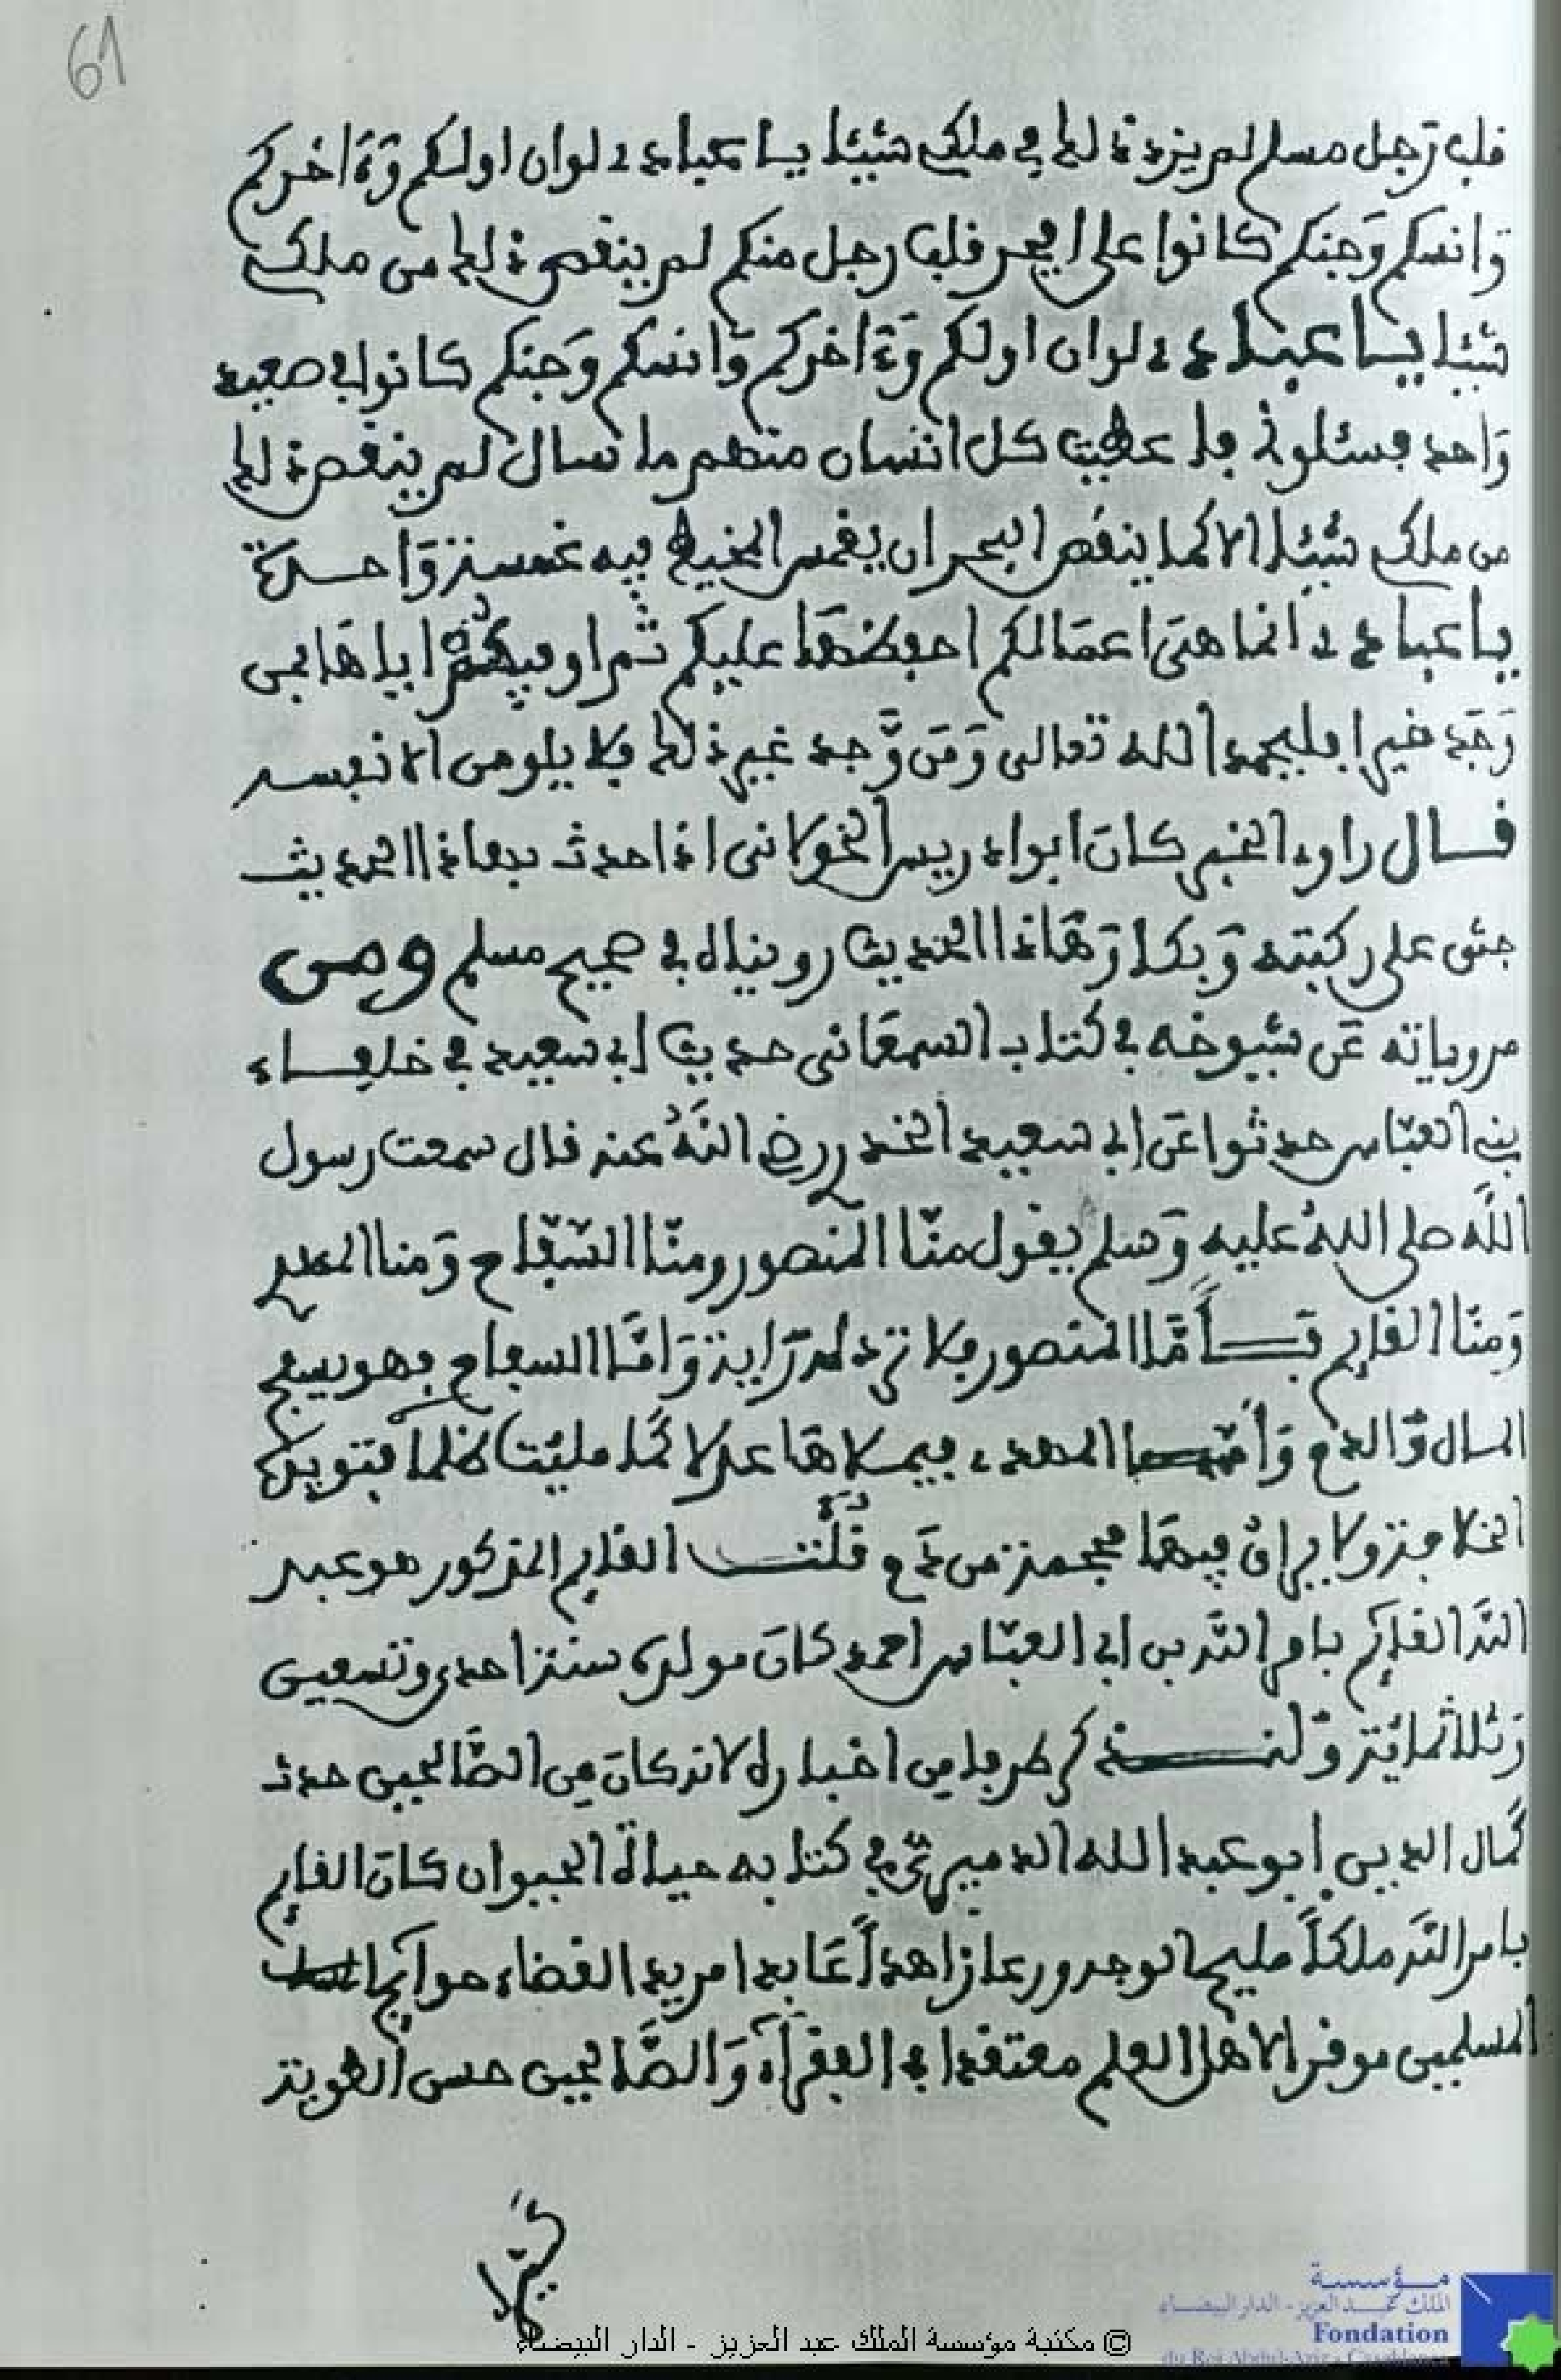 61
قلب رجل مسلم لم يزد ذلك في ملكي شيئا يا عبادي لو ان اولكم وءاخركم
وانسكم وجنكم كانوا على افجر قلب رجل منكم لم ينقص ذلك من ملكي
شيئا يا عبادي لو ان اولكم وءاخركم وانسكم وجنكم كانوا في صعيد
واحد فسئلوني فاعطيت كل انسان منهم ما سال لم ينقص ذلك
من ملكي شيئا الا كما ينقص البحر ان يغمس المخيط فيه غمسة واحدة
يا عبادي انما هي اعمالكم احفظها عليكم ثم اوفيكم اياها فمن
وجد خيرا فليحمد الله تعالى ومن وجد غير ذلك فلا يلومن الا نفسه
قال راوي الخبر كان ابو ادريس الخولاني اذا حدث بهاذا الحديث
جثى على ركبتيه وبكا وهاذا الحديث رويناه في صحيح مسلم ومن
مروياته عن شيوخه في كتاب السمعاني حديث ابي سعيد في خلفاء
بني العباس حدثوا عن ابي سعيد الخدري رضي الله عنه قال سمعت رسول
الله صلى الله عليه وسلم يقول منا المنصور ومنا السفاح ومنا
ومنا القايم فاما المنصور فلا ترد له راية واما السفاح فهو يسفح
المال والدم واما المهدي فيملاها عدلا كما مليت ظلما
الخلافة ولا يراق فيها محجمة من دم قلت القايم المذكور هو عبد
الله القايم بامر الله بن ابي العباس احمد كان مولده سنة احدى وتسعين
وثلاثمائة ولنذكر طرفا من اخباره لانه كان من الصالحين حدث
كمال الدين ابو عبد الله الدميري في كتابه حياة الحيوان كان القايم
بامر الله ملكا مليح الوجه ورعا زاهدا عابدا مريدا لقضاء حوايج
المسلمين موقرا لاهل العلم معتقدا في الفقراء والصالحين حسن الطوية
كثير
© مكتبة مؤسسة الملك عبد العزيز - الدار البيضاء
مؤسسة
الملك عبد العزيز - الدار البيضاء
Fondation
du Roi Abdul-Aziz - Casablanca